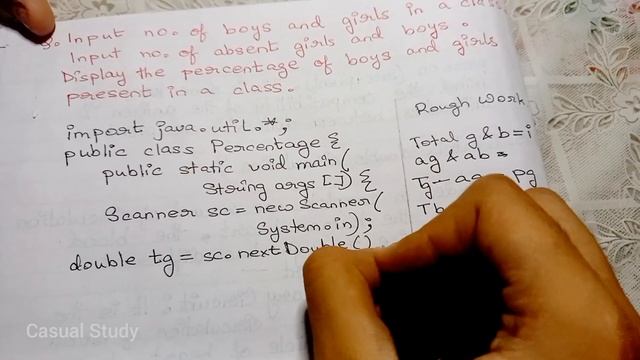 3. Input no. of boys and girls in a clas
Input no. of absent girls and boys.
Display the percentage of boys and girls
present in a class.
import java.util.*;
public class Percentage {
public static void main(
String args []) {
Scanner sc = new Scanner(
System.in);
double tg = sc.nextDouble()
Rough Work
Total g & b = i
ag & ab =
Tg - ag = pg
Tb
Casual Study